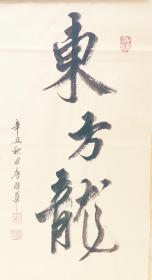 東方龍
辛丑秋月